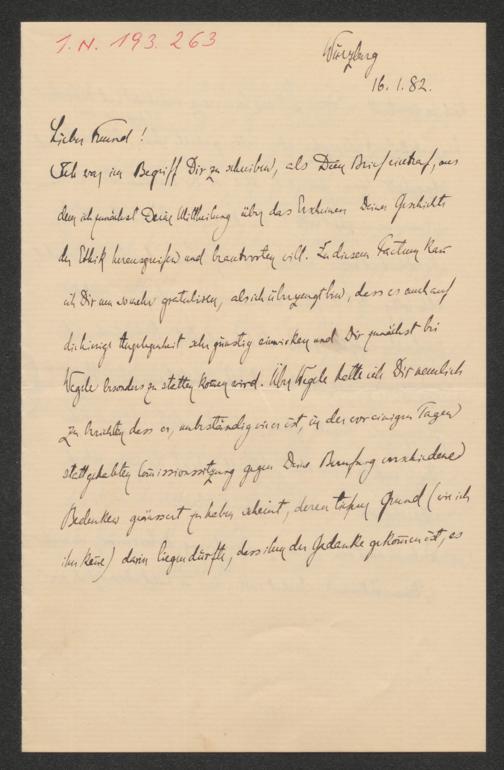 I. N. 193.263
Würzburg
16.1.82.
Lieber Freund!
Ich war im Begriff Dir zu schreiben, als Dein Brief eintraf, aus
dem ich zunächst Deine Mittheilung über das Erscheinen Deiner Geschichte
der Ethik herausgreifen und beantworten will. Zu diesem Factum kann
ich Dir um so mehr gratuliren, als ich überzeugt bin, dass es auch auf
die hiesige Angelegenheit sehr günstig einwirken und Dir zunächst bei
Wegele besonders zu statten kommen wird. Über Wegele hatte ich Dir nemlich
zu berichten dass er, unbeständig wie er ist, in der vor einigen Tagen
stattgehabten Commissionssitzung gegen Deine Berufung verschiedene
Bedenken geäussert zu haben scheint, deren tiefster Grund (wie ich
ihn kenne) darin liegen dürfte, dass ihm der Gedanke gekommen ist, es